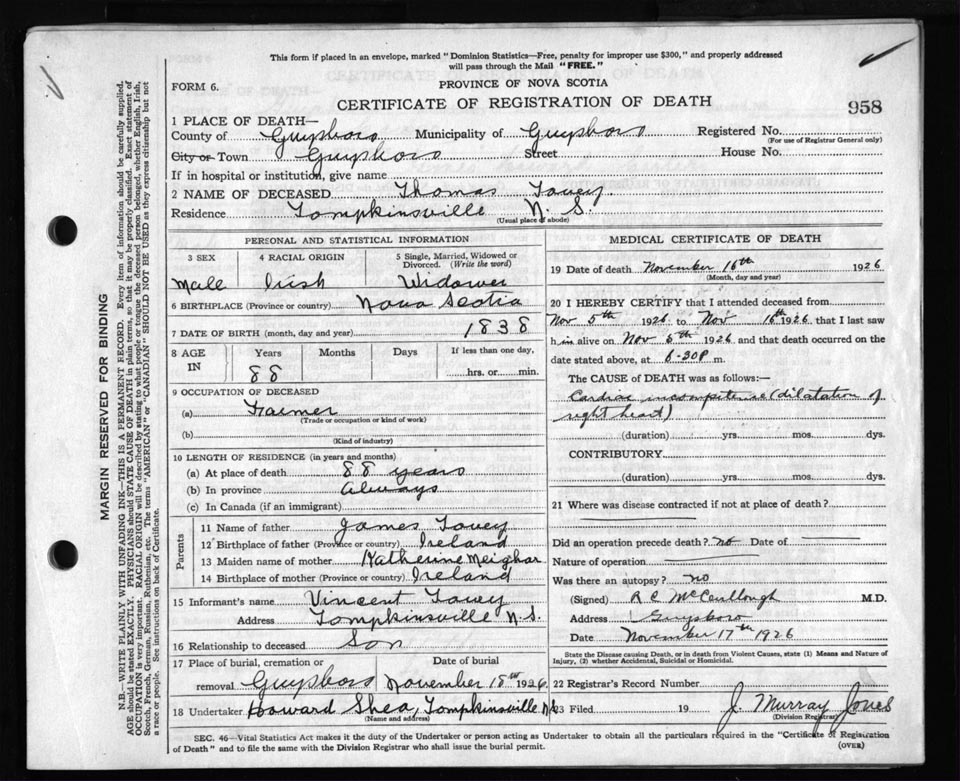 This form if placed in an envelope, marked "Dominion Statistics—Free, penalty for improper use $300," and properly addressed
will pass through the Mail "FREE."
FORM 6.
PROVINCE OF NOVA SCOTIA
CERTIFICATE OF REGISTRATION OF DEATH
958
1 PLACE OF DEATH—
County of Guysboro Municipality of Guysboro Registered No.
(For use of Registrar General only)
City or Town Guysboro Street House No.
If in hospital or institution, give name
2 NAME OF DECEASED Thomas Tovey
Residence Tompkinsville N. S.
(Usual place of abode)
PERSONAL AND STATISTICAL INFORMATION
3 SEX 4 RACIAL ORIGIN 5 Single, Married, Widowed or Divorced. (Write the word)
Male Irish Widower
6 BIRTHPLACE (Province or country) Nova Scotia
7 DATE OF BIRTH (month, day and year) 1838
8 AGE IN Years Months Days If less than one day,
88 hrs. or min.
9 OCCUPATION OF DECEASED
(a) Farmer
(Trade or occupation or kind of work)
(b)
(Kind of industry)
10 LENGTH OF RESIDENCE (in years and months)
(a) At place of death 88 years
(b) In province Always
(c) In Canada (if an immigrant)
Parents
11 Name of father James Tovey
12 Birthplace of father (Province or country) Ireland
13 Maiden name of mother Katherine Meighar
14 Birthplace of mother (Province or country) Ireland
15 Informant's name Vincent Tovey
Address Tompkinsville N.S.
16 Relationship to deceased Son
17 Place of burial, cremation or Date of burial
removal Guysboro November 18th 1926
18 Undertaker Howard Shea, Tompkinsville N.S.
(Name and address)
MEDICAL CERTIFICATE OF DEATH
19 Date of death November 16th 1926
(Month, day and year)
20 I HEREBY CERTIFY that I attended deceased from
Nov 5th 1926 to Nov 16th 1926 that I last saw
h im alive on Nov 5th 1926 and that death occurred on the
date stated above, at 6-30P m.
The CAUSE of DEATH was as follows:—
Cardiac incompetense (dilatation of
right heart)
(duration) yrs. mos. dys.
CONTRIBUTORY
(duration) yrs. mos. dys.
21 Where was disease contracted if not at place of death?
Did an operation precede death? no Date of
Nature of operation
Was there an autopsy? no
(Signed) R C McCullough M.D.
Address Guysboro
Date November 17th 1926
State the Disease causing Death, or in death from Violent Causes, state (1) Means and Nature of
Injury, (2) whether Accidental, Suicidal or Homicidal.
22 Registrar's Record Number
23 Filed 19 J. Murray Jones
(Division Registrar)
SEC. 46—Vital Statistics Act makes it the duty of the Undertaker or person acting as Undertaker to obtain all the particulars required in the "Certificate of Registration
of Death" and to file the same with the Division Registrar who shall issue the burial permit.
(OVER)
MARGIN RESERVED FOR BINDING
N.B.—WRITE PLAINLY WITH UNFADING INK—THIS IS A PERMANENT RECORD. Every item of information should be carefully supplied.
AGE should be stated EXACTLY. PHYSICIANS should STATE CAUSE OF DEATH in plain terms, so that it may be properly classified. Exact statement of
OCCUPATION is very important. RACIAL ORIGIN will be described by stating to what people or tongue the deceased person belonged, whether English, Irish,
Scotch, French, German, Russian, Ruthenian, etc. The terms "AMERICAN" or "CANADIAN" SHOULD NOT BE USED as they express citizenship but not
a race or people. See instructions on back of Certificate.